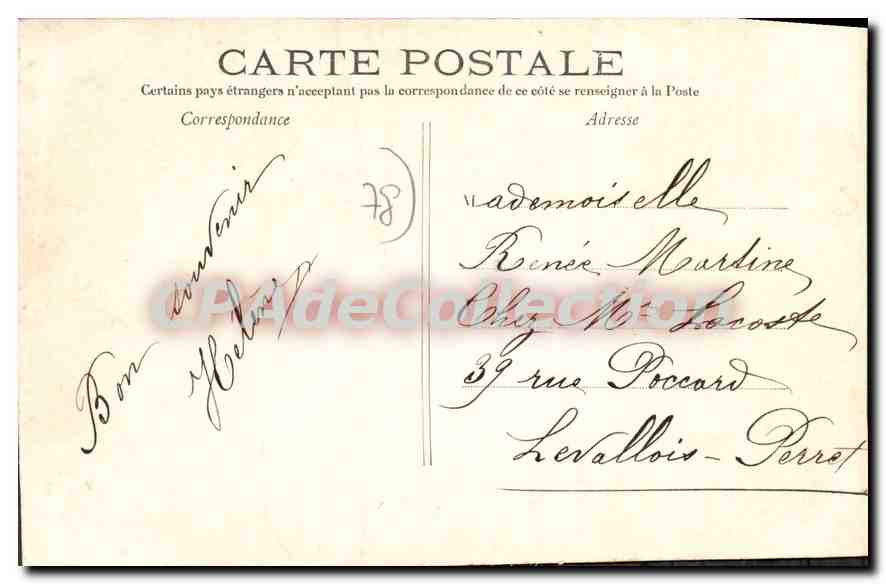 CARTE POSTALE
Certains pays étrangers n'acceptant pas la correspondance de ce côté se renseigner à la Poste
Correspondance
Adresse
78
Bon souvenir
Hélène
ademoiselle
Renée Martine
Chez Mr Lacoste
39 rue Poccard
Levallois - Perret
CPAdeCollection